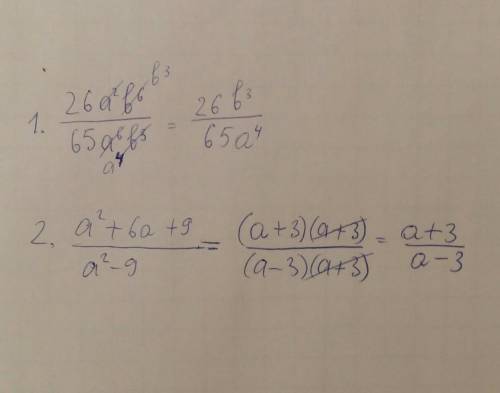 1. 26a²b⁶ b³ / 65a⁶b³ a⁴ = 26b³ / 65a⁴
2. a²+6a+9 / a²-9 = (a+3)(a+3) / (a-3)(a+3) = a+3 / a-3